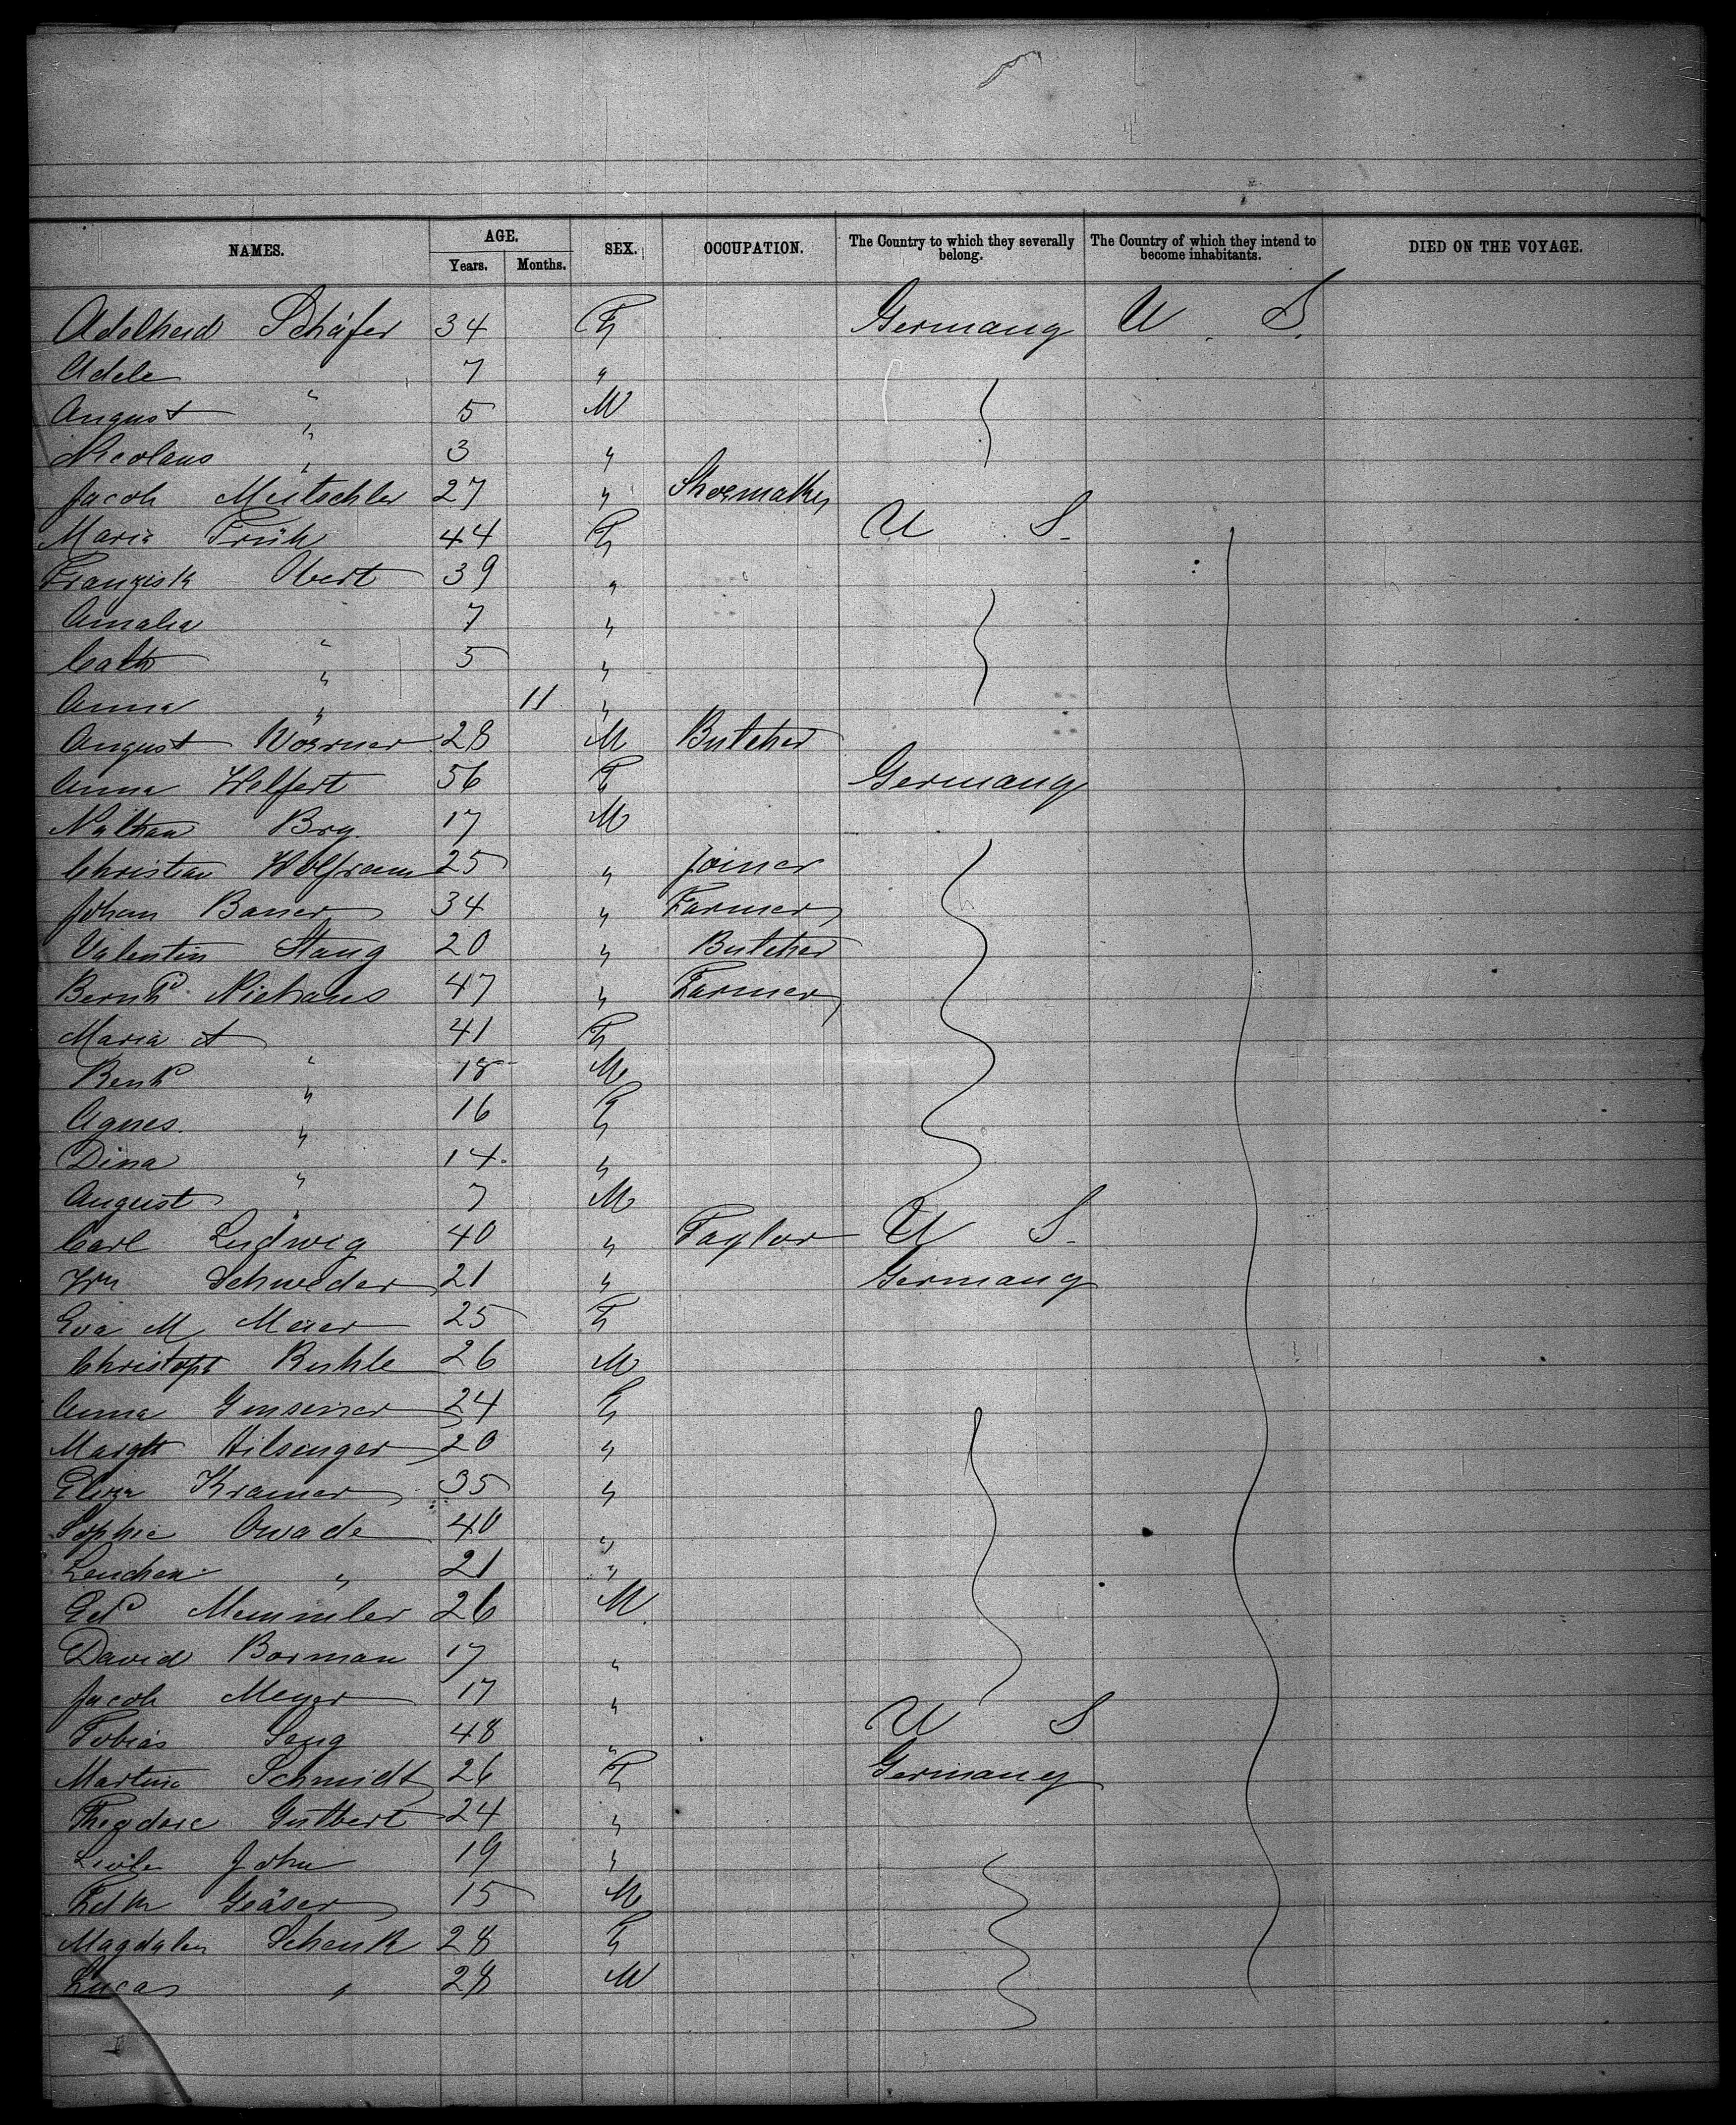 NAMES. AGE. SEX. OCCUPATION. The Country to which they severally belong. The Country of which they intend to become inhabitants. DIED ON THE VOYAGE.
Years. Months.
Adelheid Schäfer 34 F Germany U. S.
Adele " 7 "
August " 5 M
Nicolaus " 3 "
Jacob Mutschler 27 " Shoemaker
Maria Früh 44 F U. S.
Franzisk Obert 39 "
Amalia " 7 "
Cath " 5 "
Anna " 11 "
August Woerner 28 M Butcher
Anna Helfert 56 F Germany
Nathan Brg 17 M
Christian Wolfram 25 " Joiner
Johan Bauer 34 " Farmer
Valentin Stang 20 " Butcher
Bernhd Niehaus 47 " Farmer
Maria A " 41 F
Benhd " 18 M
Agnes " 16 F
Dina " 14 "
August " 7 M
Carl Ludwig 40 " Taylor U S.
Wm Schweder 21 " Germany
Eva M Meier 25 F
Christoph Ruhle 26 M
Anna 24 F
Margth Hilsenger 20 "
Eliza Kramer 35 "
Sophie Owade 40 "
Lenchen " 21 "
Ed Memmler 26 M
David Borman 17 "
Jacob Meyer 17 "
Tobias Seng 48 " U S
Martina Schmidt 26 F Germany
Theodore Gutbert 24 "
John 19 "
Gläser 15 M
Magdalen Schenk 28 F
Lucas " 28 M